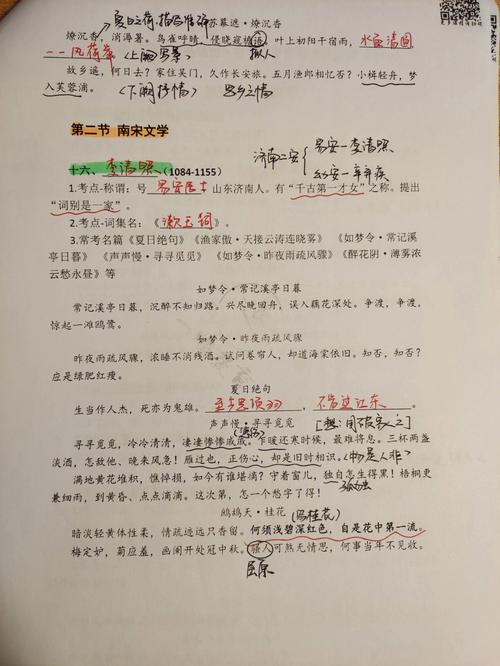 夏日之荷,描写准确 苏幕遮·燎沉香
燎沉香,消溽暑。鸟雀呼晴,侵晓窥檐语。叶上初阳干宿雨,水面清圆
一一风荷举 (上阕写景) 拟人
故乡遥,何日去?家住吴门,久作长安旅。五月渔郎相忆否?小楫轻舟,梦
入芙蓉浦。 (下阕抒情) 思乡之情
第二节 南宋文学
济南二安 { 易安—李清照
十六、李清照(1084-1155) 幼安—辛弃疾
1.考点-称谓:号 易安居士 山东济南人。有“千古第一才女”之称。提出
“词别是一家”。
2.考点-词集名:《漱玉词》。
3.常考名篇《夏日绝句》《渔家傲·天接云涛连晓雾》 《如梦令·常记溪
亭日暮》 《声声慢·寻寻觅觅》 《如梦令·昨夜雨疏风骤》《醉花阴·薄雾浓
云愁永昼》等
如梦令·常记溪亭日暮
常记溪亭日暮,沉醉不知归路。兴尽晚回舟,误入藕花深处。争渡,争渡,
惊起一滩鸥鹭。
如梦令·昨夜雨疏风骤
昨夜雨疏风骤,浓睡不消残酒。试问卷帘人,却道海棠依旧。知否,知否?
应是绿肥红瘦。
夏日绝句
生当作人杰,死亦为鬼雄。至今思项羽,不肯过江东。
声声慢·寻寻觅觅
寻寻觅觅,冷冷清清,凄凄惨惨戚戚。乍暖还寒时候,最难将息。三杯两盏
淡酒,怎敌他、晚来风急!雁过也,正伤心,却是旧时相识。(物是人非)
满地黄花堆积,憔悴损,如今有谁堪摘?守着窗儿,独自怎生得黑!梧桐更
兼细雨,到黄昏、点点滴滴。这次第,怎一个愁字了得! 孤独
鹧鸪天·桂花 (写桂花)
暗淡轻黄体性柔,情疏迹远只香留。何须浅碧深红色,自是花中第一流。
梅定妒,菊应羞,画阑开处冠中秋。骚人可煞无情思,何事当年不见收。
屈原